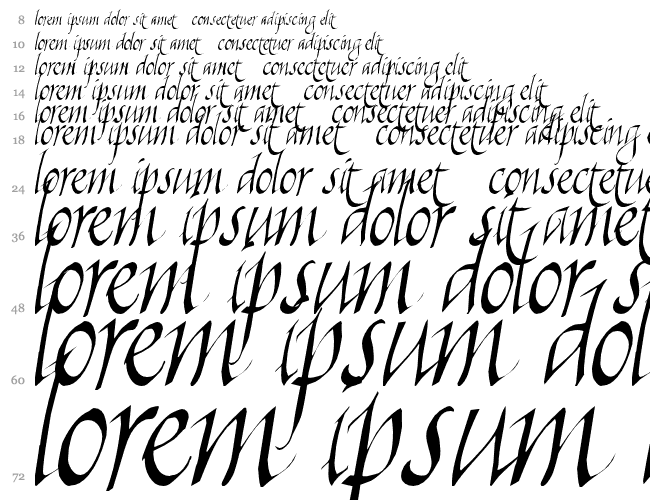 8 lorem ipsum dolor sit amet consectetuer adipiscing elit
10 lorem ipsum dolor sit amet consectetuer adipiscing elit
12 lorem ipsum dolor sit amet consectetuer adipiscing elit
14 lorem ipsum dolor sit amet consectetuer adipiscing elit
16 lorem ipsum dolor sit amet consectetuer adipiscing elit
18 lorem ipsum dolor sit amet consectetuer adipiscing e
24 lorem ipsum dolor sit amet consectetue
36 lorem ipsum dolor sit amet
48 lorem ipsum dolor s
60 lorem ipsum dol
72 lorem ipsum